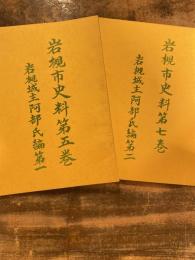 岩槻市史料第五巻
岩槻城主阿部氏編第一
岩槻市史料第七巻
岩槻城主阿部氏編第二